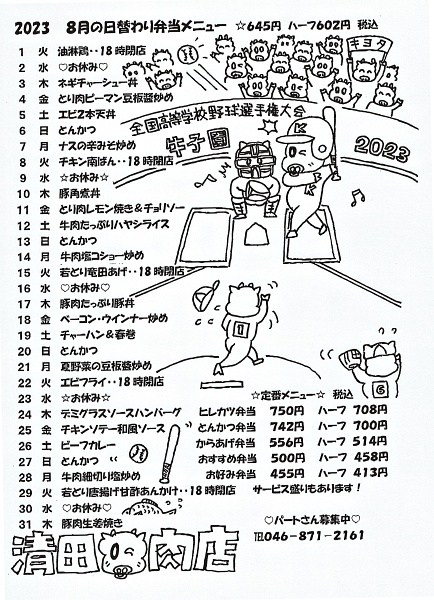 2023 8月の日替わり弁当メニュー ☆645円 ハーフ602円 税込
1 火 油淋鶏・・18時閉店
2 水 ♡お休み♡
3 木 ネギチャーシュー丼
4 金 とり肉ピーマン豆板醤炒め
5 土 エビ2本天丼
6 日 とんかつ
7 月 ナスの辛みそ炒め
8 火 チキン南ばん・・18時閉店
9 水 ☆お休み☆
10 木 豚角煮丼
11 金 とり肉レモン焼き&チョリソー
12 土 牛肉たっぷりハヤシライス
13 日 とんかつ
14 月 牛肉塩コショー炒め
15 火 若どり竜田あげ・・18時閉店
16 水 ♡お休み♡
17 木 豚肉たっぷり豚丼
18 金 ベーコン・ウインナー炒め
19 土 チャーハン&春巻
20 日 とんかつ
21 月 夏野菜の豆板醤炒め
22 火 エビフライ・・18時閉店
23 水 ☆お休み☆
24 木 デミグラスソースハンバーグ
25 金 チキンソテー和風ソース
26 土 ビーフカレー
27 日 とんかつ
28 月 牛肉細切り塩炒め
29 火 若どり唐揚げ甘酢あんかけ・・18時閉店
30 水 ♡お休み♡
31 木 豚肉生姜焼き
キヨタ
全国高等学校野球選手権大会
牛子園
2023
K
K
1
6
☆定番メニュー☆ 税込
ヒレカツ弁当 750円 ハーフ 708円
とんかつ弁当 742円 ハーフ 700円
からあげ弁当 556円 ハーフ 514円
おすすめ弁当 500円 ハーフ 458円
お好み弁当 455円 ハーフ 413円
サービス盛りもあります!
♡パートさん募集中♡
℡046-871-2161
清田肉店